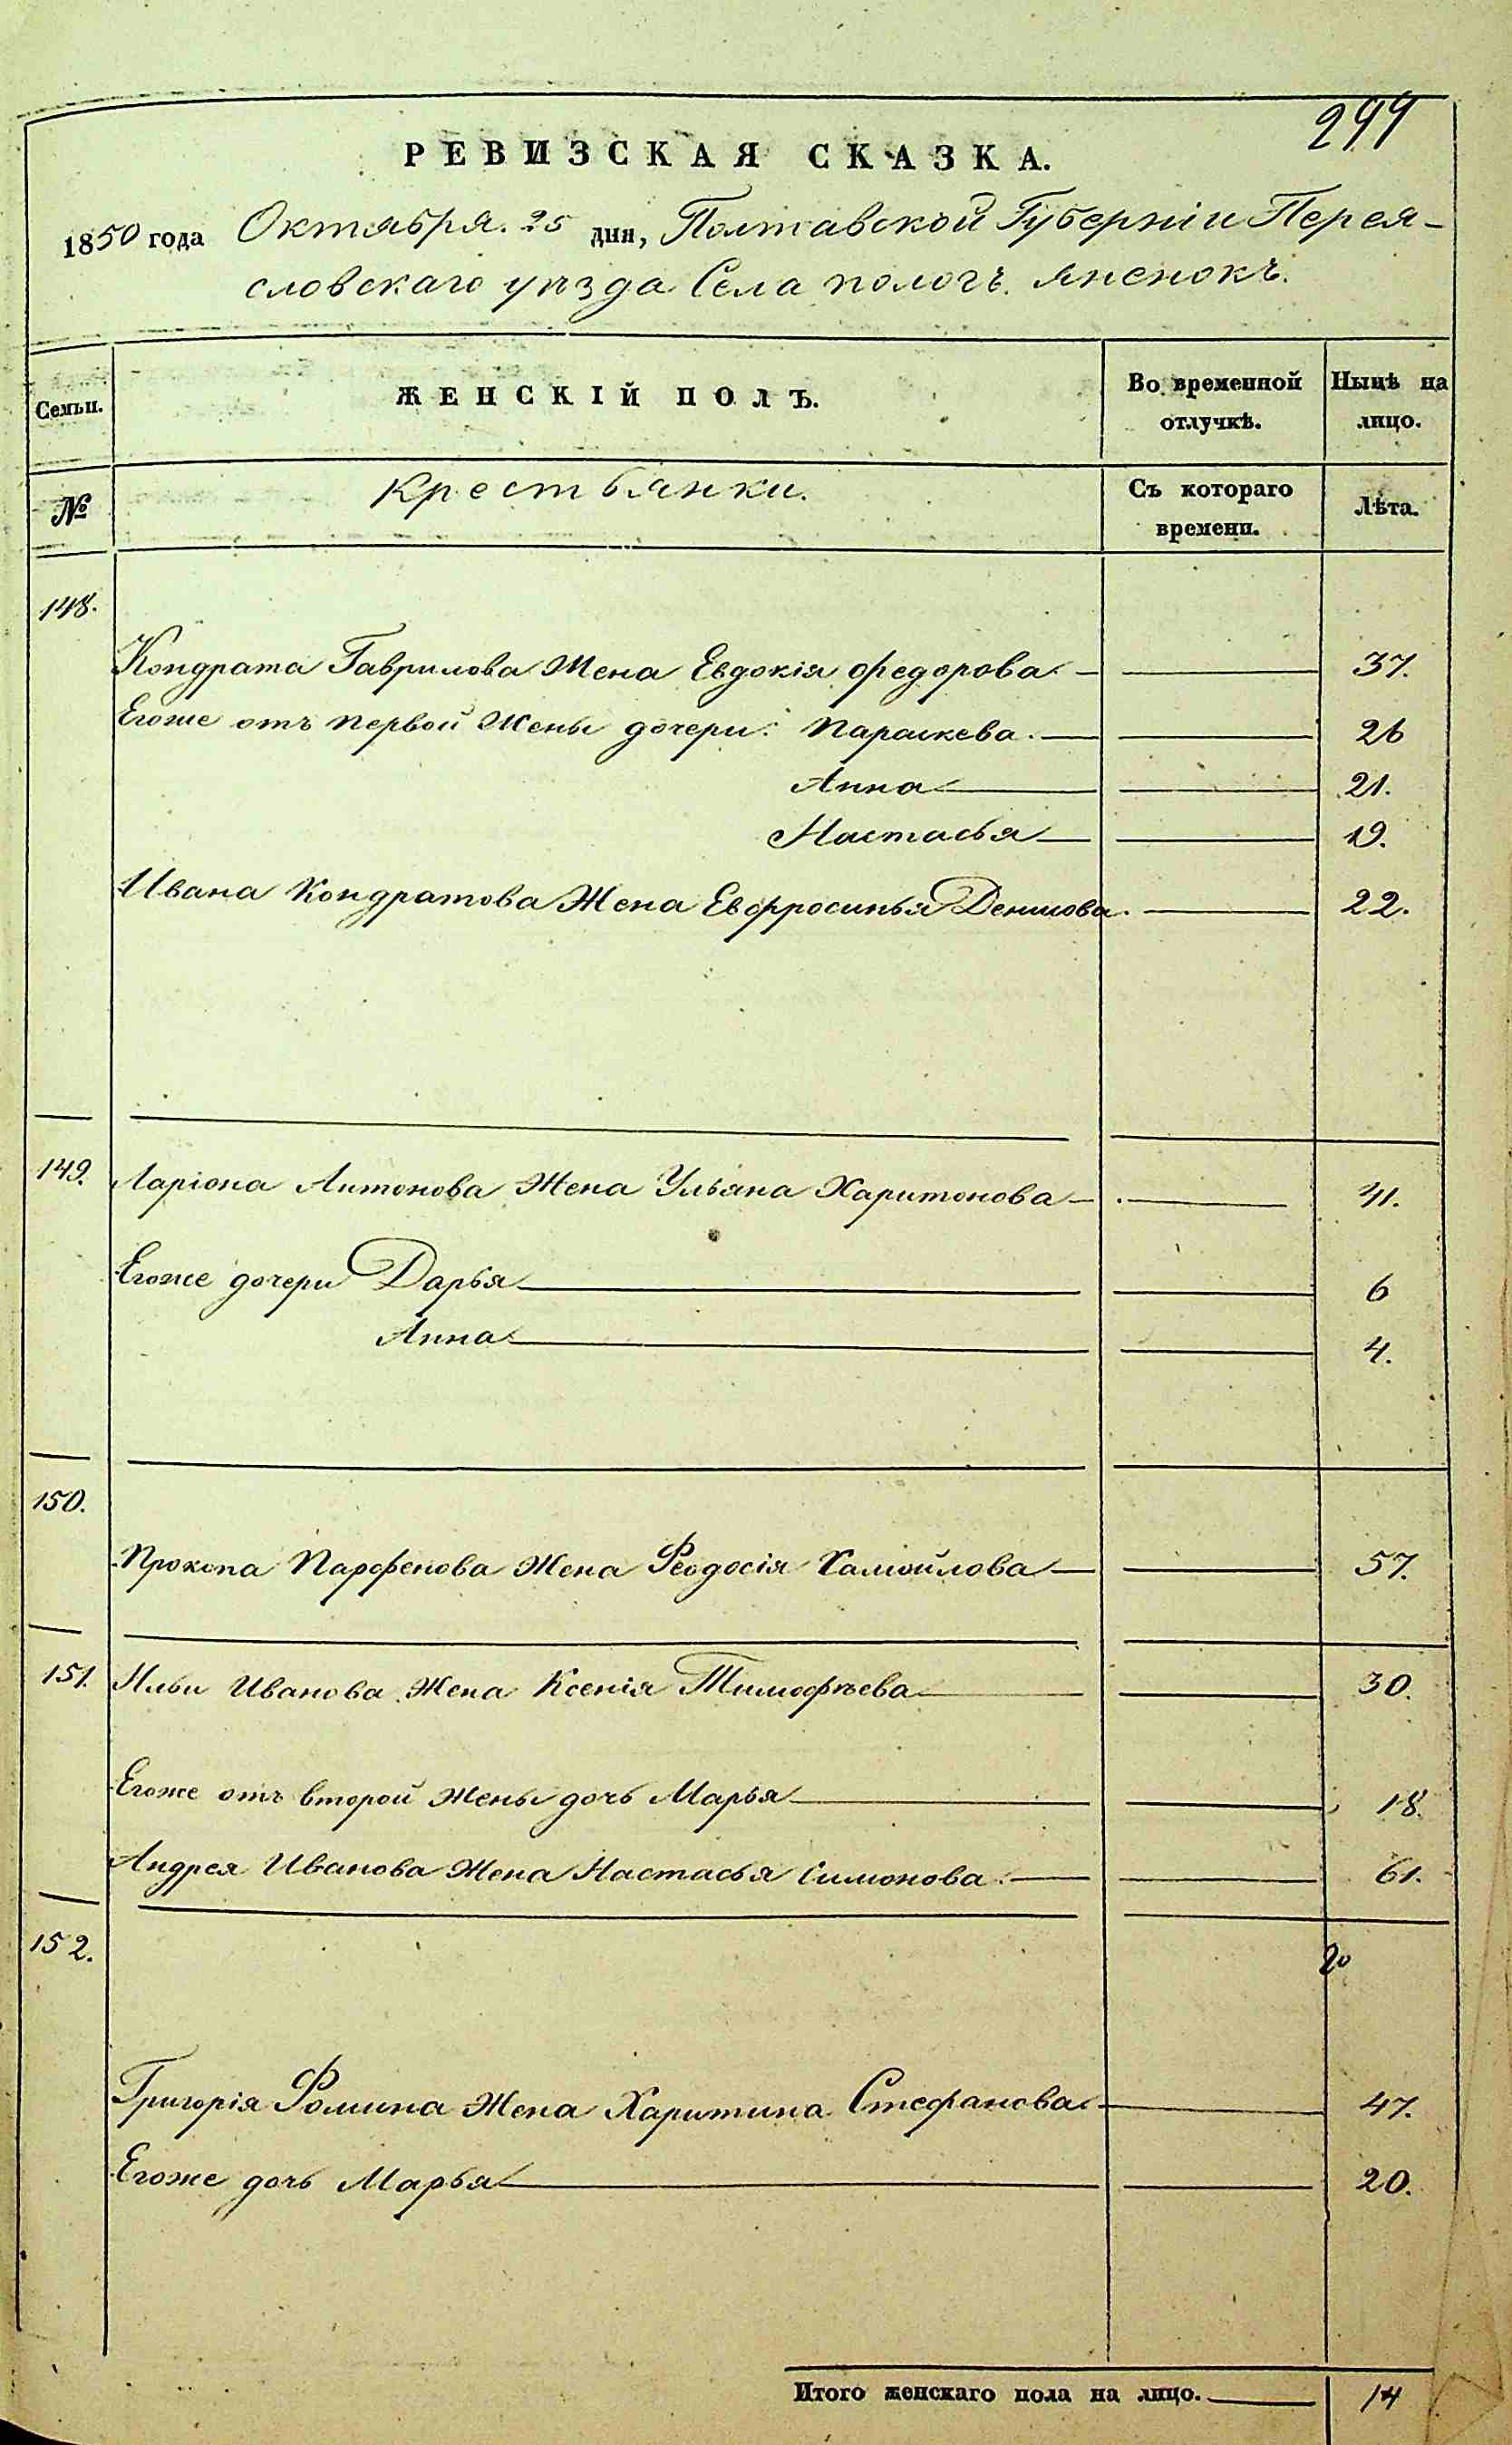 299
РЕВИЗСКАЯ СКАЗКА.
1850 года Октября. 25 дня, Полтавской Губерніи Перея-
словскаго уѣзда Села пологъ яненокъ.
Семьи. ЖЕНСКІЙ ПОЛЪ. Во временной отлучкѣ. Нынѣ на лицо.
№ Крестьянки. Съ котораго времени. Лѣта.
148.
Кондрата Гаврилова Жена Евдокія Федорова 37.
Егоже отъ первой Жены дочери: Параскева. 26
Анна 21.
Настасья 19.
Ивана Кондратова Жена Евфросинья Денисова. 22.
149. Ларіона Антонова Жена Ульяна Харитонова 41.
Егоже дочери Дарья 6
Анна 4.
150.
Прокопа Парфенова Жена Феодосія Самойлова 57.
151. Ильи Иванова Жена Ксенія Тимофѣева 30.
Егоже отъ второй жены дочь Марья 18.
Андрея Иванова Жена Настасья Симонова. 61.
152.
Григорія Фомина Жена Харитина Стефанова 47.
Егоже дочь Марья 20.
Итого женскаго пола на лицо. 14